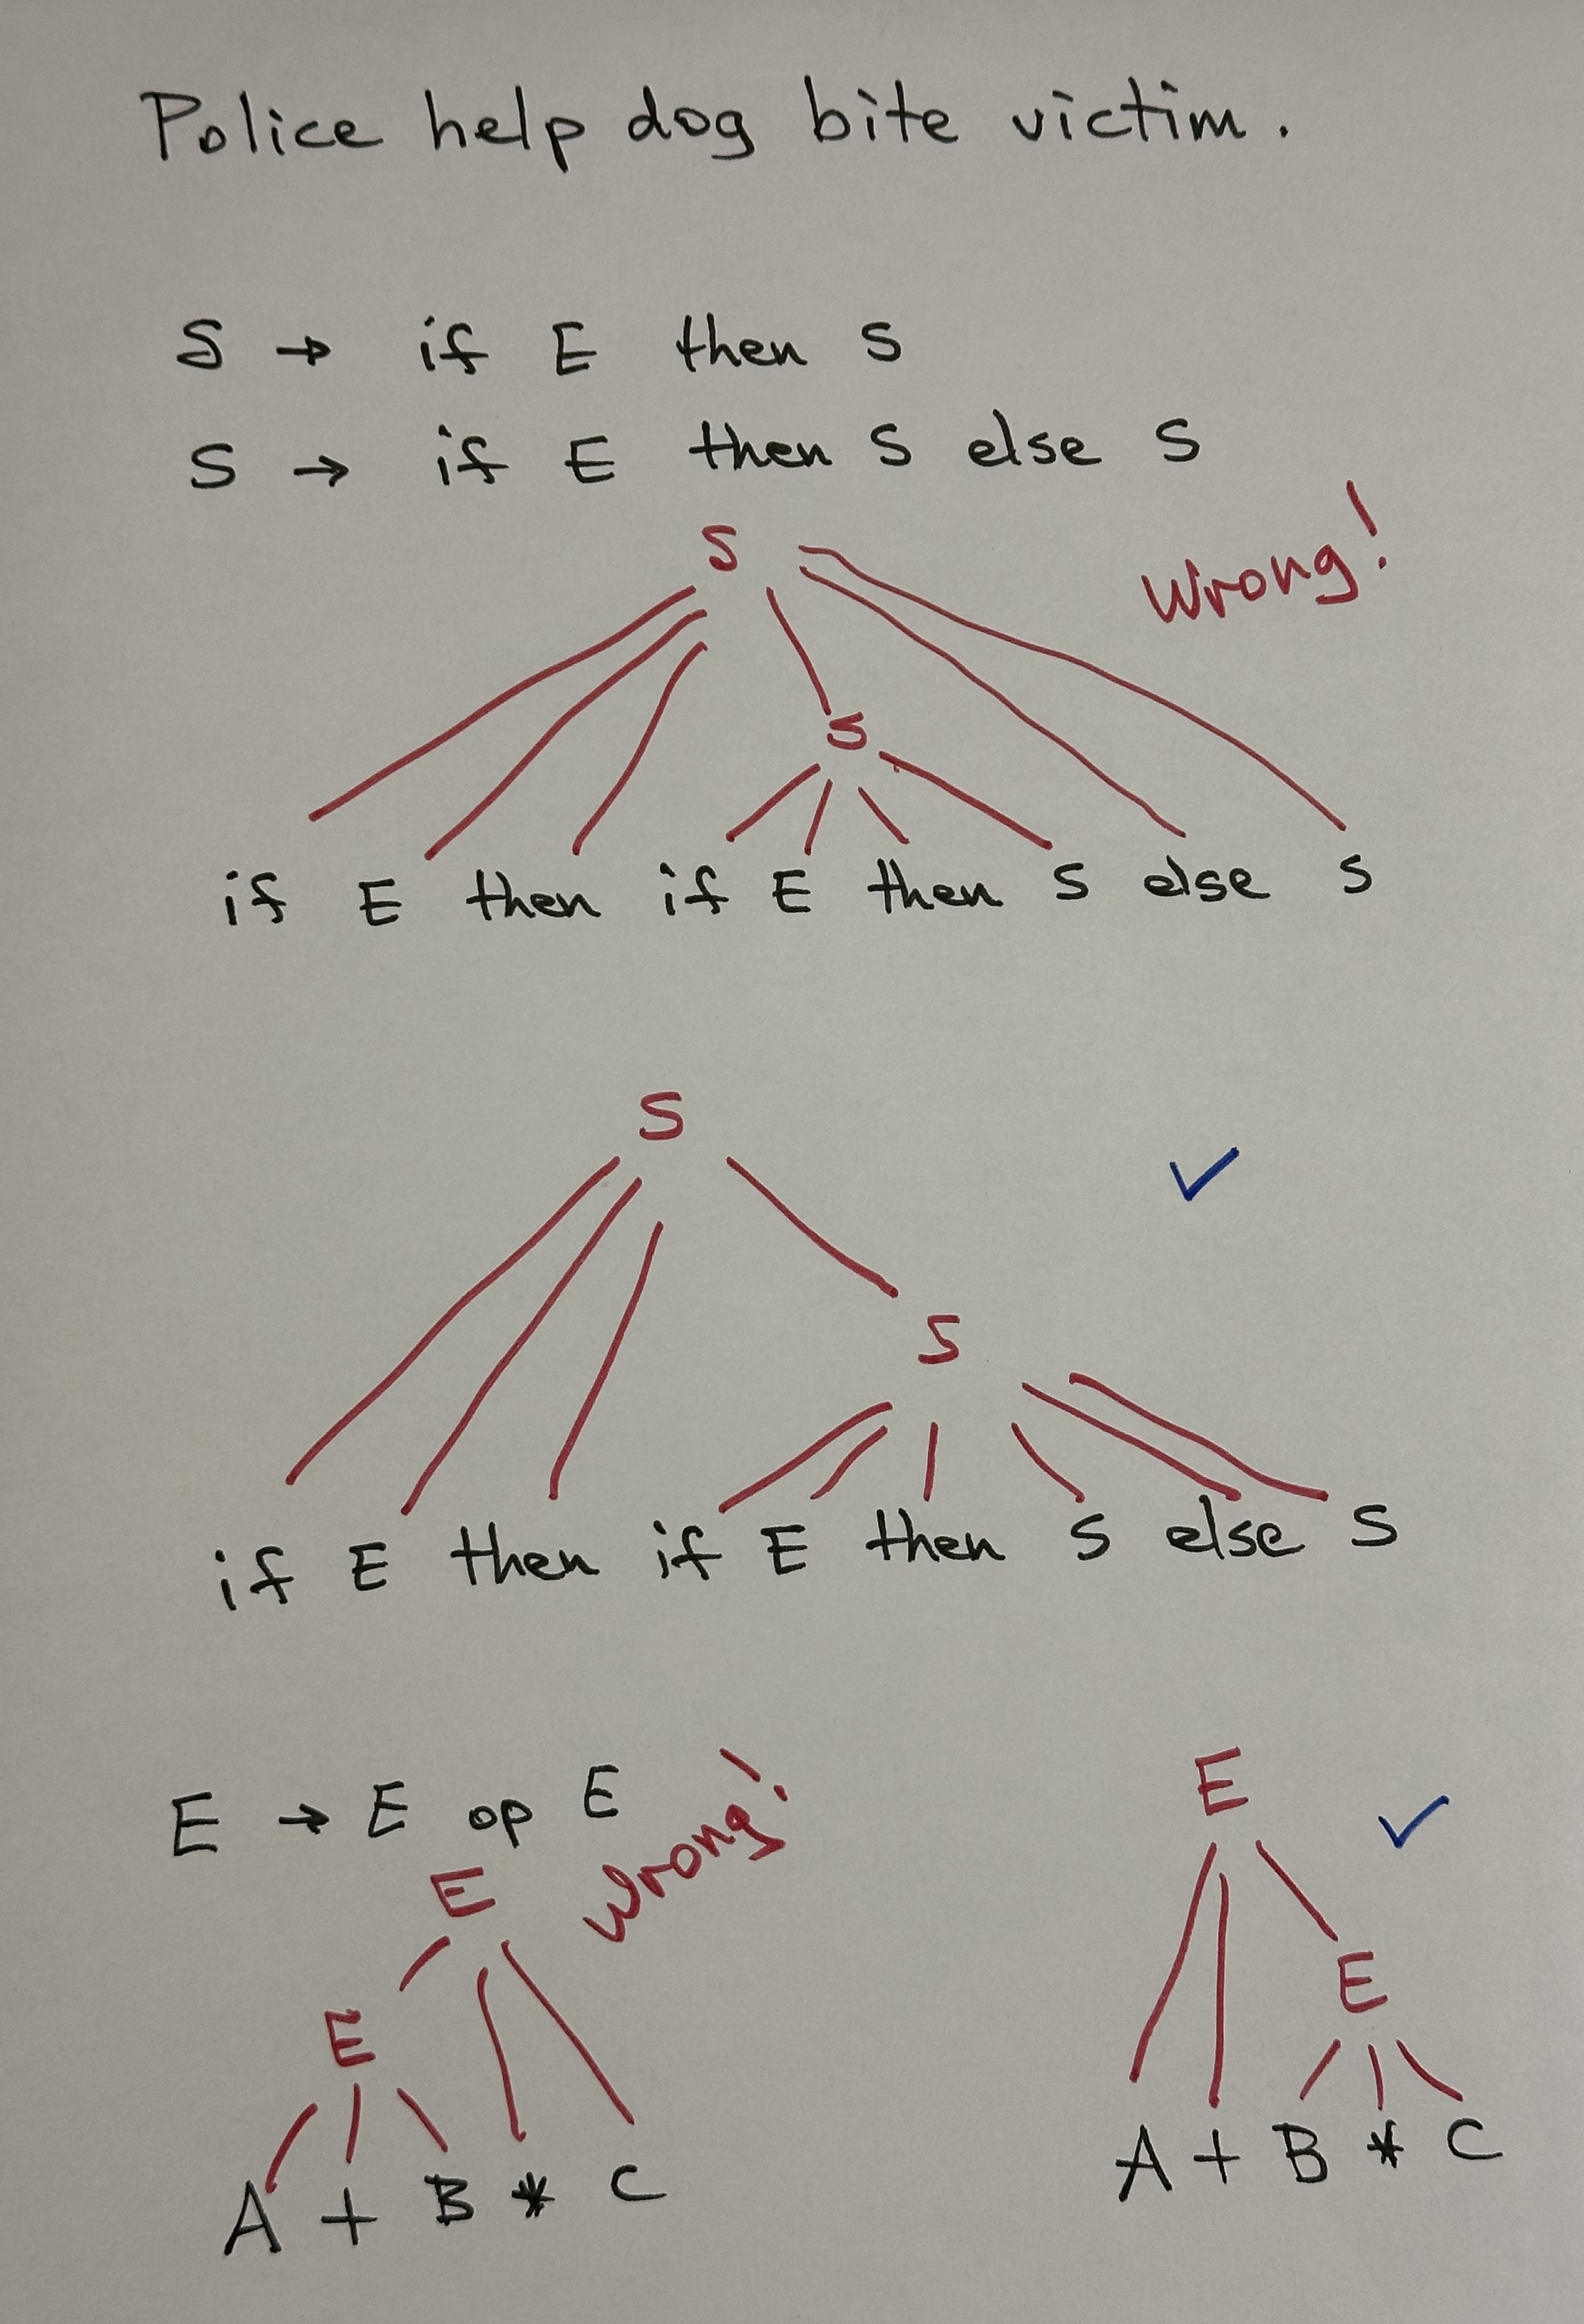 Police help dog bite victim.
S → if E then S
S → if E then S else S
S
Wrong!
S
if E then if E then S else S
S
✓
S
if E then if E then S else S
E → E op E
Wrong!
E
E
A + B * C
E
✓
E
A + B * C